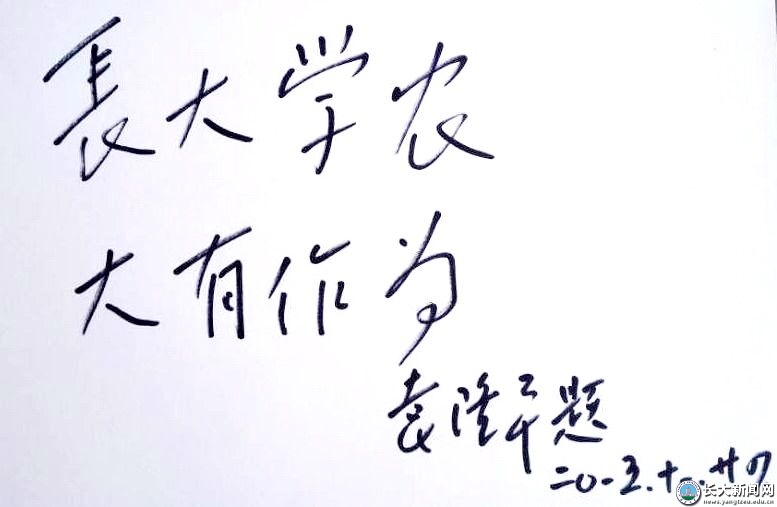 長大学农
大有作为
袁隆平题
二0一三.十二.廿四
长大新闻网
www.yangtzeu.edu.cn